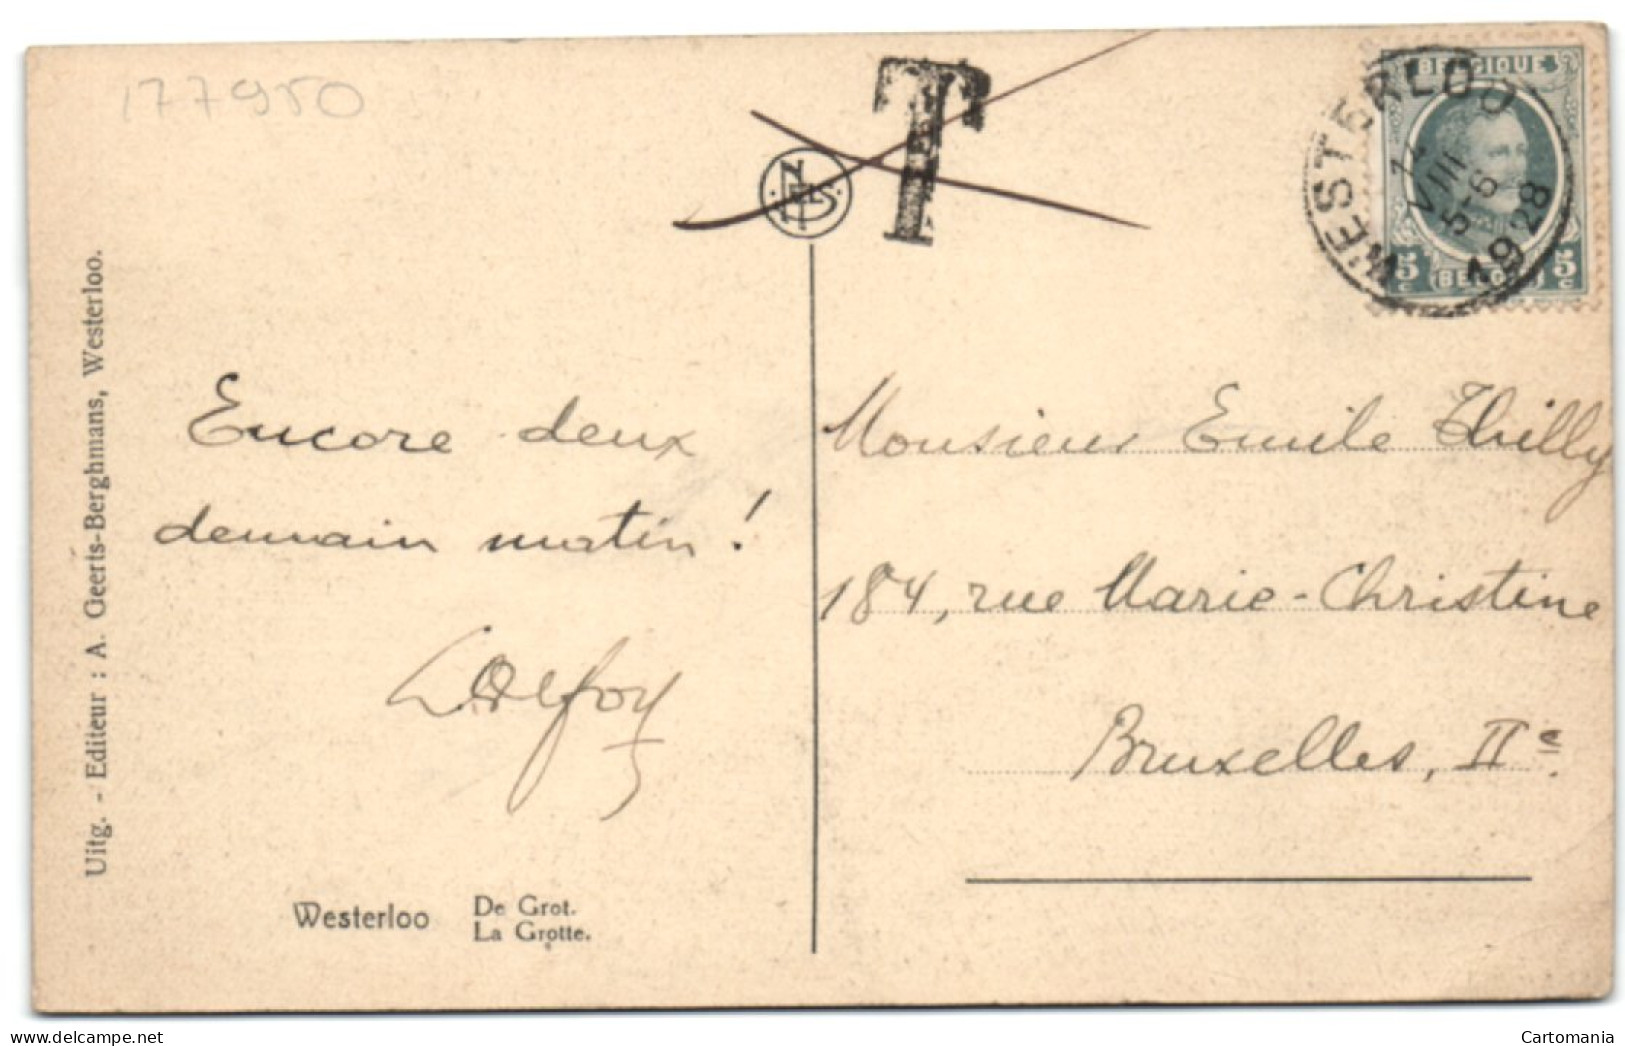 177950
T
NELS
BELGIQUE
5 c 5 c
WESTERLOO
VIII
5-6
1928
Encore deux
demain matin !
Monsieur Emile Thilly
184, rue Marie-Christine
Bruxelles, IIe.
Uitg. - Editeur : A. Geerts-Berghmans, Westerloo.
Westerloo De Grot.
La Grotte.
delcampe.net
Cartomania